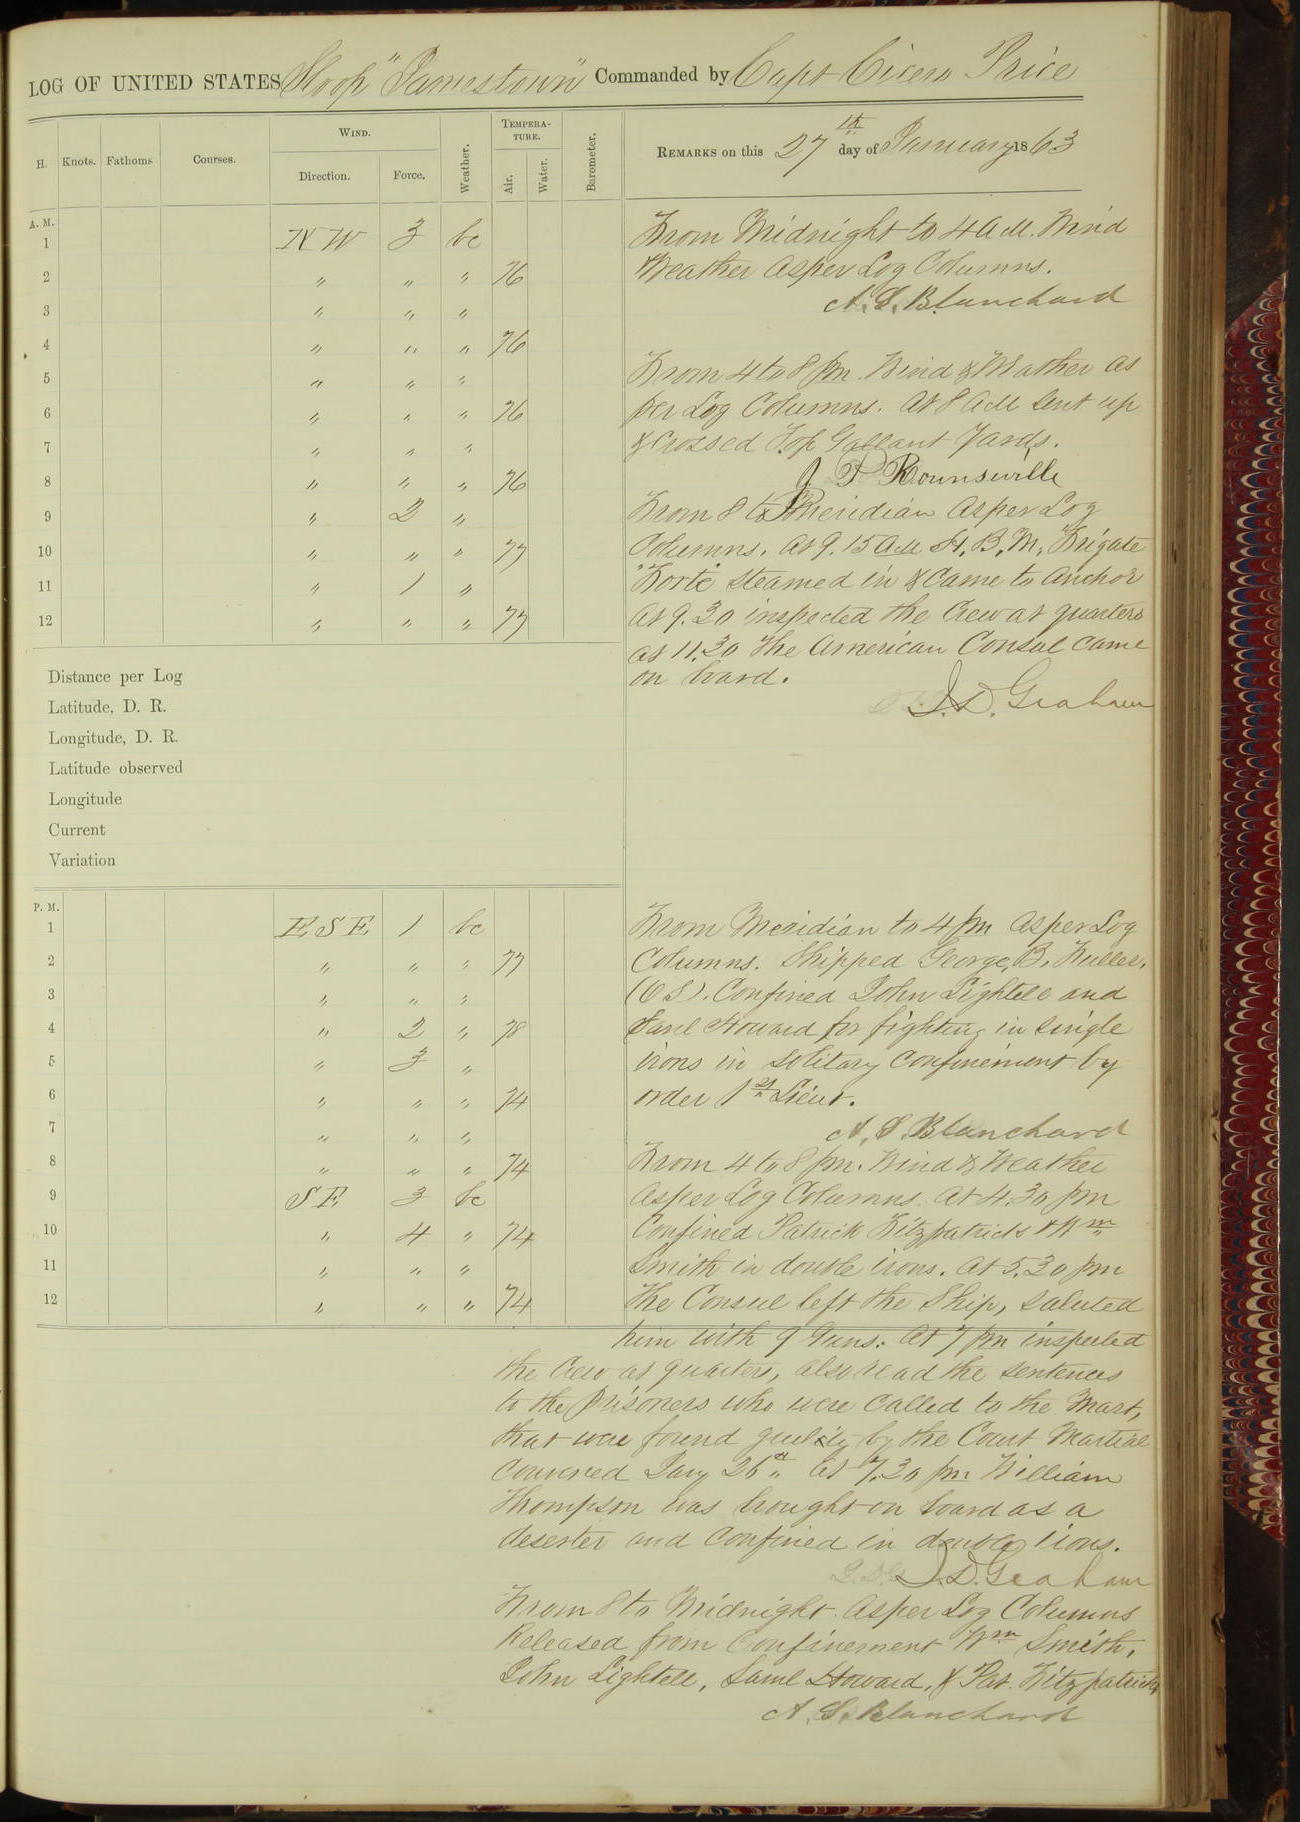 LOG OF UNITED STATES Sloop "Jamestown" Commanded by Capt Cicero Price
H. Knots. Fathoms Courses. Wind. Direction. Force. Weather. Tempera-ture. Air. Water. Barometer.
Remarks on this 27th day of January 1863
A. M.
1 NW 3 bc
2 " " " 76
3 " " "
4 " " " 76
5 " " "
6 " " " 76
7 " " "
8 " " " 76
9 " 2 "
10 " " " 77
11 " 1 "
12 " " " 77
From Midnight to 4 AM. Wind
Weather As per Log Columns.
A. S. Blanchard
From 4 to 8 pm. Wind & Weather as
per Log Columns. At 8 AM sent up
& Crossed Top Gallant Yards.
J P Rounsville
From 8 to Meridian As per Log
Columns. At 9.15 AM H. B. M. Frigate
"Forte" steamed in & came to Anchor
At 9.30 inspected the Crew at quarters
at 11.30 the American Consul came
on board.
J. D. Graham
Distance per Log
Latitude, D. R.
Longitude, D. R.
Latitude observed
Longitude
Current
Variation
P. M.
1 ESE 1 bc
2 " " " 77
3 " " "
4 " 2 " 78
5 " 3 "
6 " " " 74
7 " " "
8 " " " 74
9 SE 3 bc
10 " 4 " 74
11 " " "
12 " " " 74
From Meridian to 4 pm As per Log
Columns. Shipped George B. Fuller.
(OS). Confined John Lightell and
Saml Howard for fighting in single
irons in solitary confinement by
order 1st Lieut.
A. S. Blanchard
From 4 to 8 pm. Wind & Weather
As per Log Columns. At 4.30 pm
Confined Patrick Fitzpatrick & Wm
Smith in double irons. At 5.30 pm
the Consul left the Ship, saluted
him with 9 Guns. At 7 pm inspected
the Crew at quarters, also read the sentences
to the prisoners who were called to the Mast,
that were found guilty by the Court Martial
convened Jany 26th. At 7.30 pm William
Thompson was brought on board as a
deserter and confined in double irons.
J. D. Graham
From 8 to Midnight. As per Log Columns
Released from Confinement Wm Smith,
John Lightell, Saml Howard, & Pat. Fitzpatrick
A. S. Blanchard